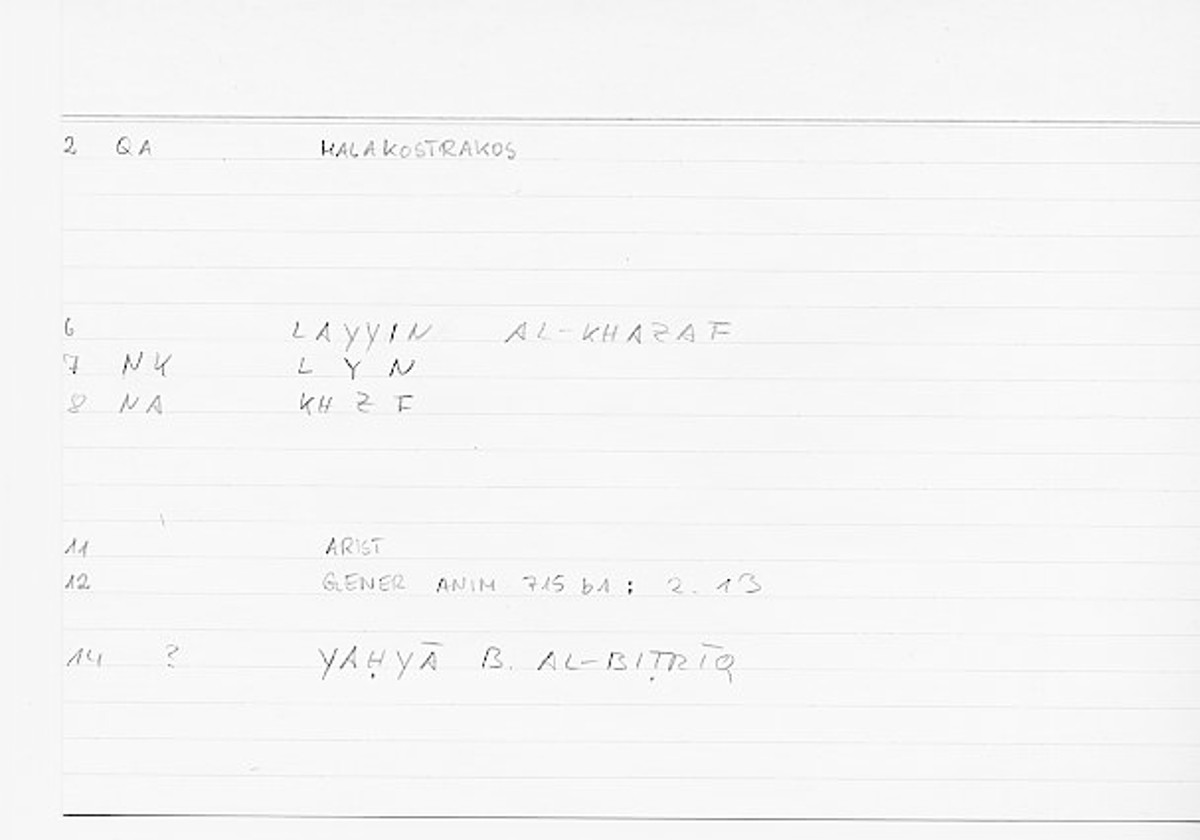 2 QA MALAKOSTRAKOS
6 LAYYIN AL-KHAZAF
7 NK L Y N
8 NA KH Z F
11 ARIST
12 GENER ANIM 715 b1 : 2. 13
14 ? YAḤYĀ B. AL-BIṬRĪQ